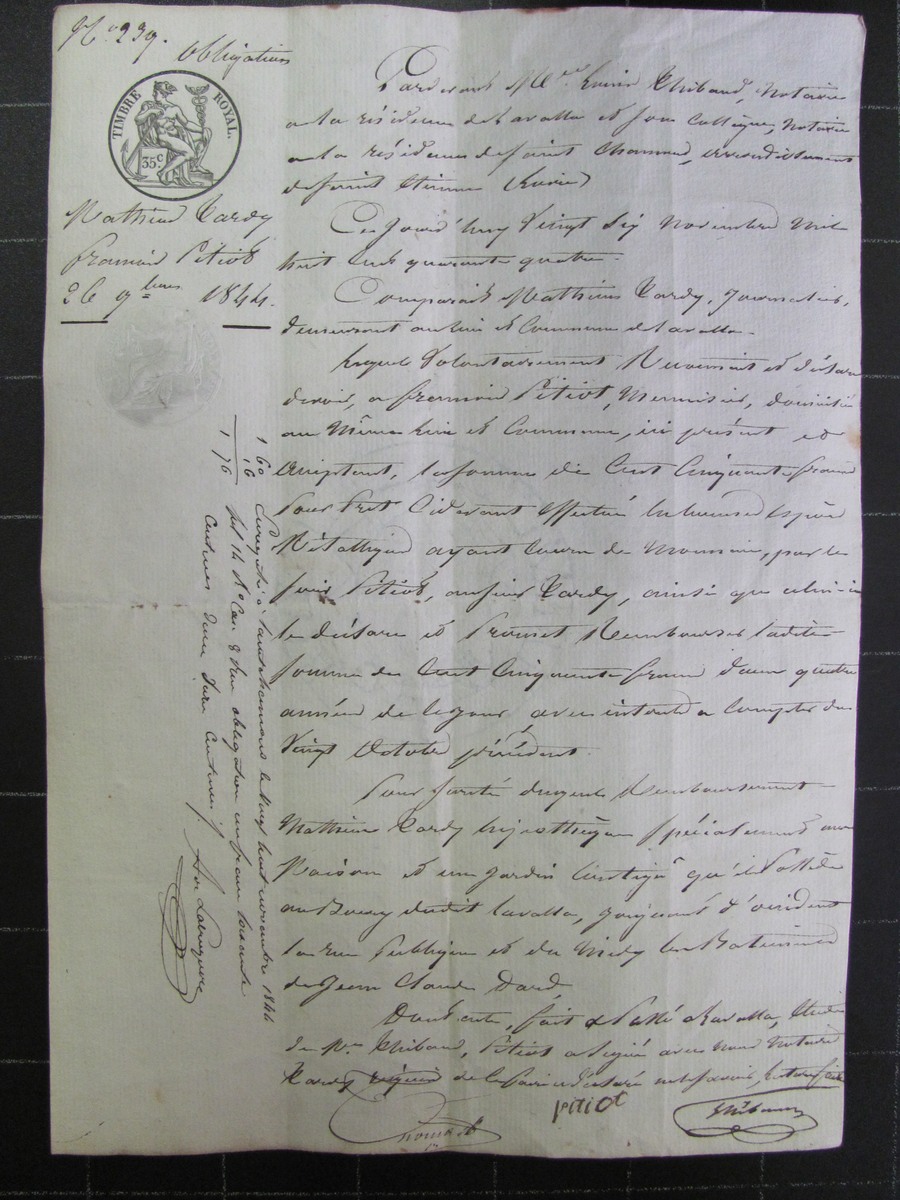 N° 239.
Obligation
TIMBRE ROYAL.
35 c
Mathieu Tardy
français Pitiot
26 9bre 1844.
Pardevant Me Thibaud, Notaire
a la résidence de Lavalla et son Collègue, Notaire
a la résidence de Saint Chamond, arrondissement
de Saint Etienne (Loire)
Ce jourd'huy Vingt Six Novembre Mil
huit cent quarante quatre.
Comparait Mathieu Tardy, Journalier,
demeurant au lieu et Commune de Lavalla.
Lequel Volontairement Reconnait et déclare
devoir, a français Pitiot, Menuisier, domicilié
au Même lieu et Commune, ici présent et
acceptant, la somme de Cent Cinquante francs
Pour Prêt Cidevant effectué en bonnes espèces
Métalliques ayant cours de Monnaie, par le
sieur Pitiot, au sieur Tardy, ainsi que celui-ci
le déclare et Promet Rembourser ladite
somme de Cent Cinquante francs dans quatre
années de ce jour, avec intérêts a Compter du
Vingt Octobre précédent.
Pour sureté duquel Remboursement
Mathieu Tardy hypothèque Spécialement une
Maison et un Jardin Contigus qu'il Possède
au Bourg dudit Lavalla, joignant d'occident
la rue Publique et du Midy les Batiments
de Jean Claude Dard.
Dont acte, fait et Passé a Lavalla, Etude
de Me Thibaud, Pitiot a signé avec nous Notaire
Tardy requis de le faire a déclaré ne le savoir, lecture faite
pitiot
Thibaud
1 60
16
1 76
Enregistré à Saint Chamond le vingt huit novembre 1844
obligation un franc soixante
centimes